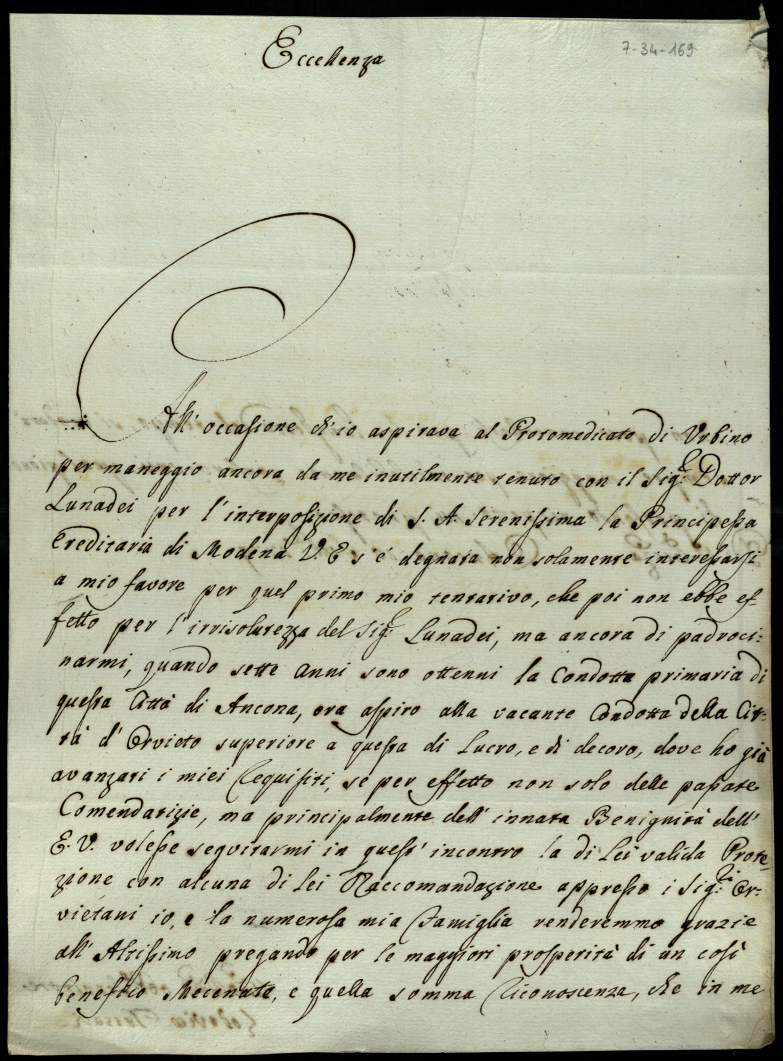 Eccellenza
7-34-169
All' occasione ch'io aspirava al Protomedicato di Urbino
per maneggio ancora da me inutilmente tenuto con il Sig.r Dottor
Lunadei per l'interposizione di S. A. Serenissima la Principessa
Ereditaria di Modena V. E s'è degnata non solamente interessarsi
a mio favore per quel primo mio tentativo, che poi non ebbe ef-
fetto per l'irrisolutezza del Sig.r Lunadei, ma ancora di padroci-
narmi, quando sette anni sono ottenni la Condotta primaria di
questa Città di Ancona, ora aspiro alla vacante Condotta della Cit-
tà d' Orvieto superiore a questa di Lucro, e di decoro, dove ho già
avanzati i miei Requisiti, se per effetto non solo delle passate
Comendatizie, ma principalmente dell' innata Benignità dell'
E. V. volesse seguitarmi in quest' incontro la di Lei valida Prote-
zione con alcuna di lei Raccomandazione appresso i Sig.ri Or-
vietani io, e la numerosa mia Famiglia renderemmo grazie
all' Altissimo pregando per le maggiori prosperità di un così
benefico Mecenate, e quella somma Riconoscenza, che in me